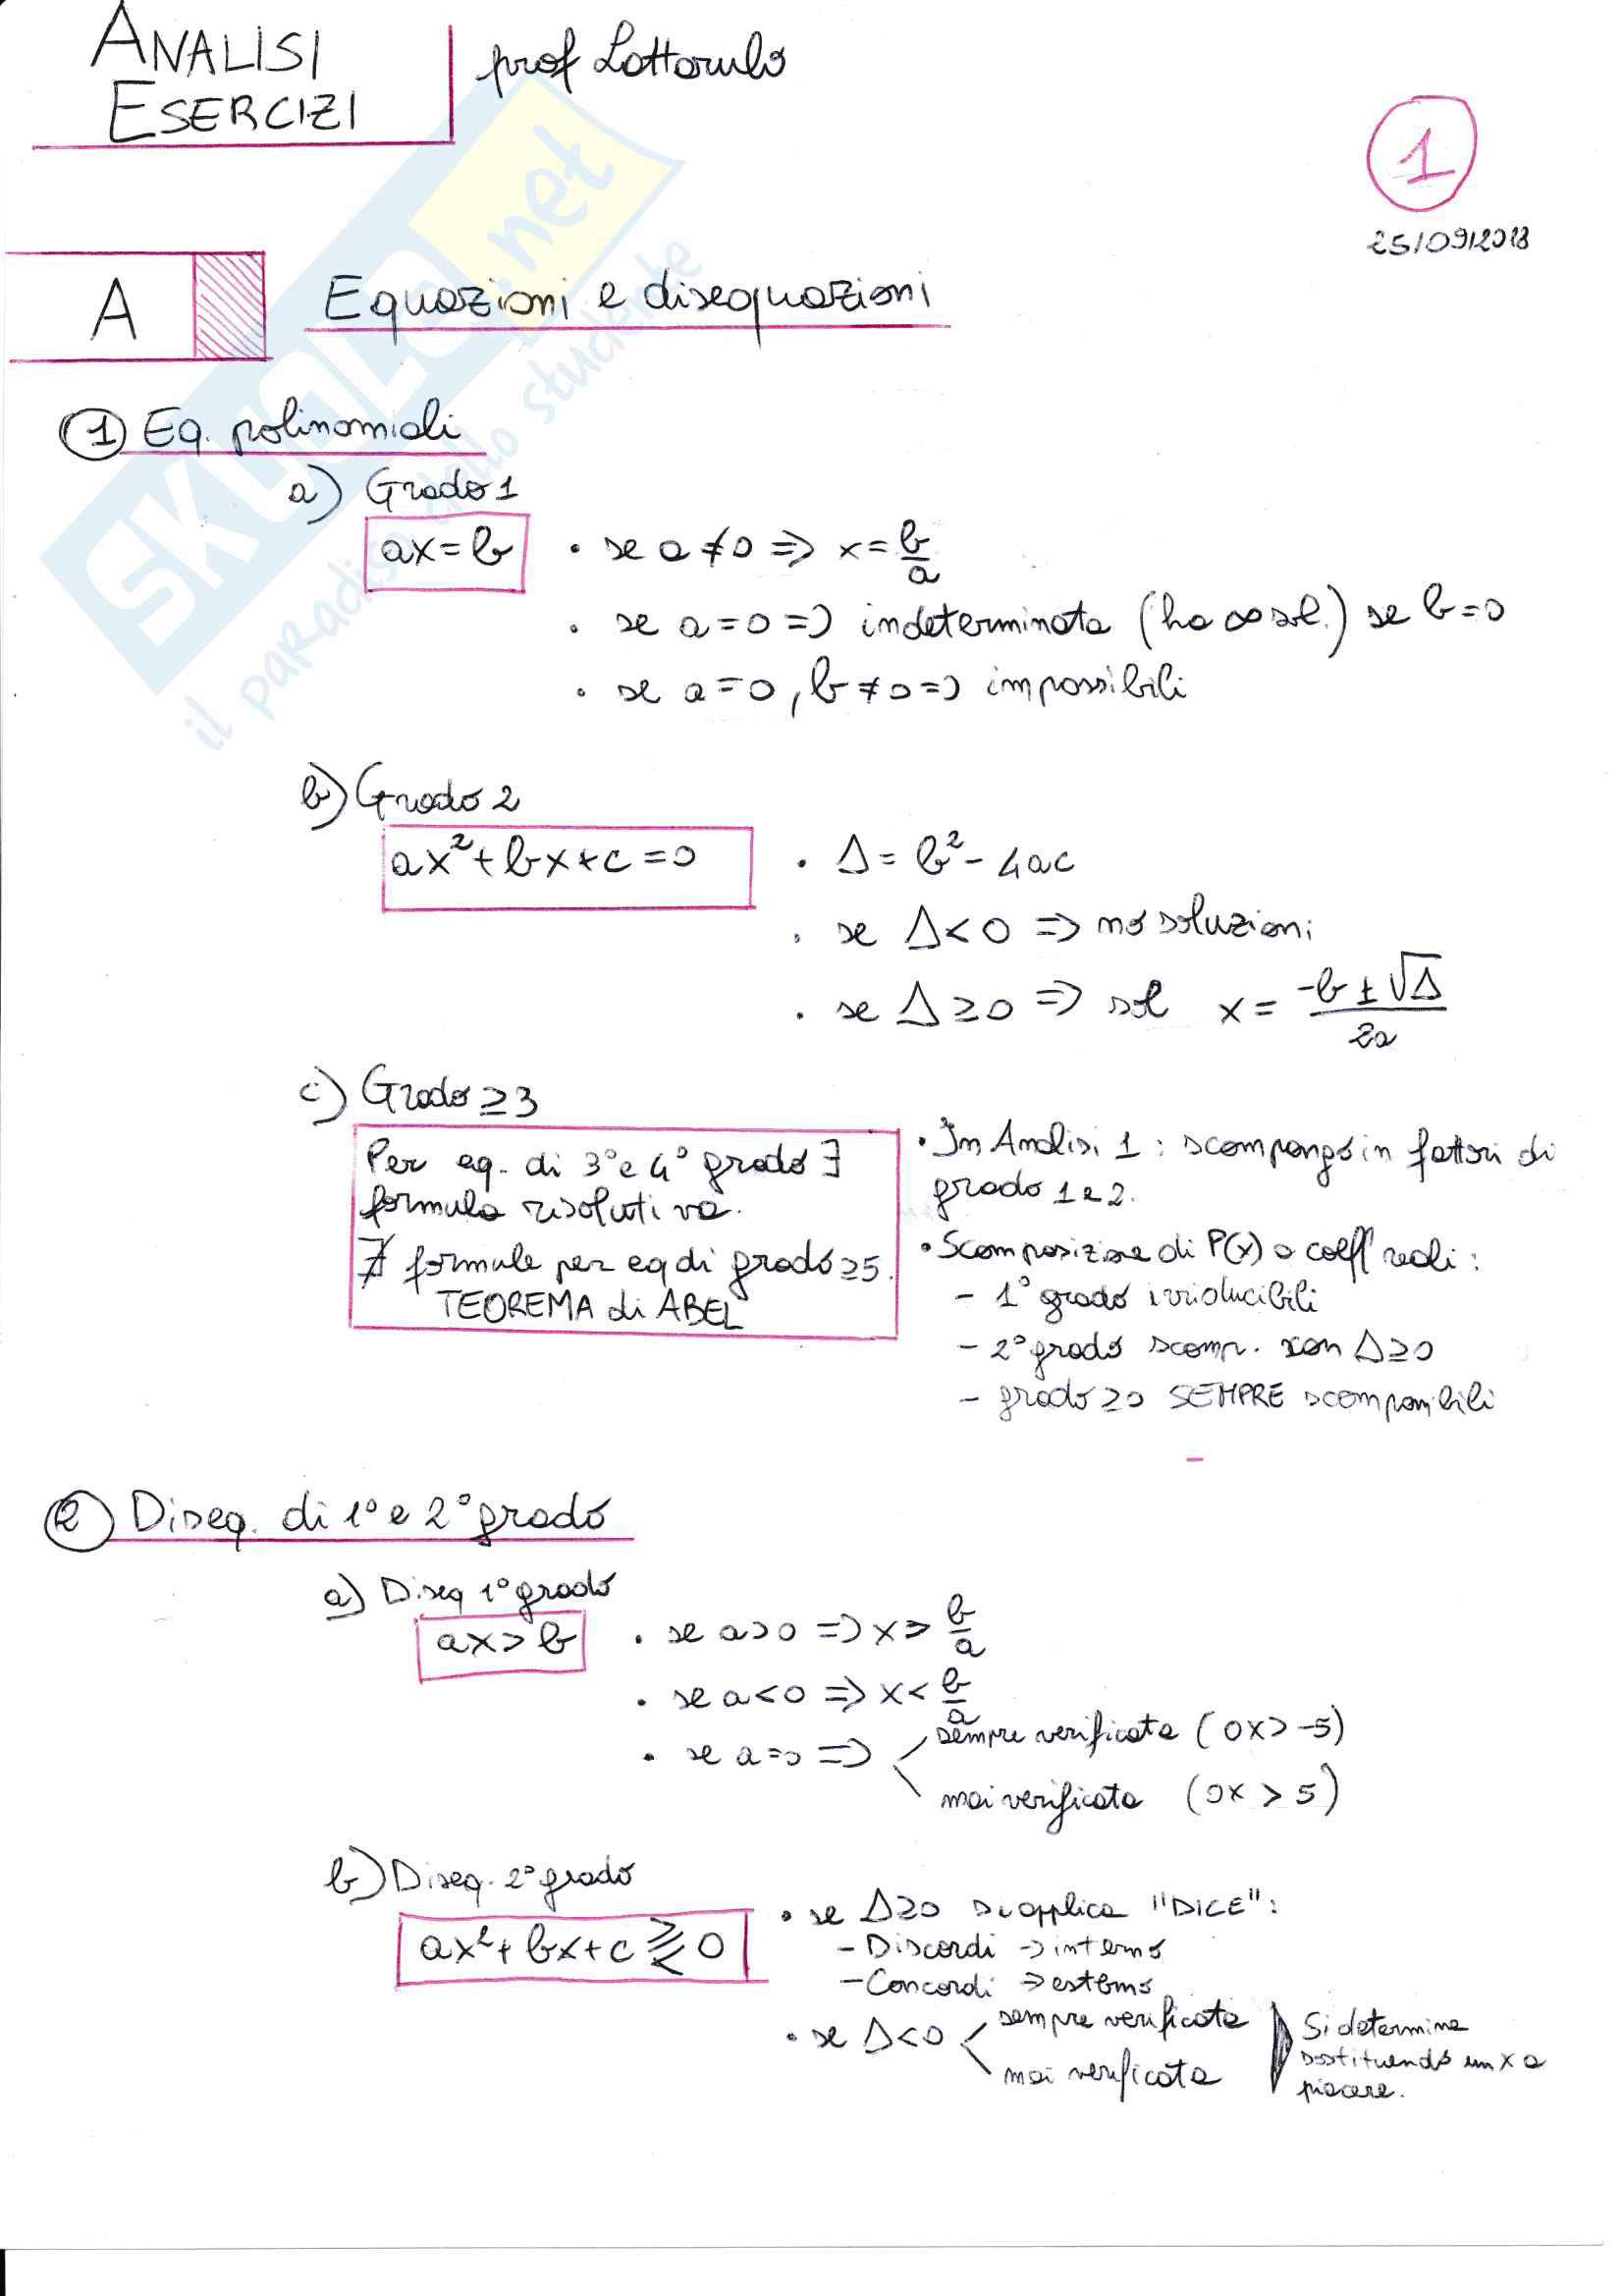 ANALISI
ESERCIZI
prof Lottarulo
1
25/09/2013
SKUOLA.net
il paradiso dello studente
A
Equazioni e disequazioni
1 Eq. polinomiali
a) Grado 1
ax = b • se a ≠ 0 => x = b/a
• se a = 0 => indeterminata (ha ∞ sol.) se b = 0
• se a = 0, b ≠ 0 => impossibili
b) Grado 2
ax² + bx + c = 0 • Δ = b² - 4ac
• se Δ < 0 => no soluzioni
• se Δ ≥ 0 => sol x = (-b ± √Δ)/2a
c) Grado ≥ 3
Per eq. di 3° e 4° grado ∃
formula risolutiva.
∄ formule per eq di grado ≥ 5.
TEOREMA di ABEL
• In Analisi 1 : scompongo in fattori di
grado 1 e 2.
• Scomposizione di P(x) a coeff reali :
- 1° grado irriducibili
- 2° grado scomp. con Δ ≥ 0
- grado ≥ 3 SEMPRE scomponibili
2 Diseq. di 1° e 2° grado
a) Diseq 1° grado
ax > b • se a > 0 => x > b/a
• se a < 0 => x < b/a
• se a = 0 => sempre verificata (0x > -5)
mai verificata (0x > 5)
b) Diseq. 2° grado
ax² + bx + c ≷ 0
• se Δ ≥ 0 si applica "DICE" :
- Discordi → interno
- Concordi → esterno
• se Δ < 0 sempre verificata
mai verificata
Si determina
sostituendo un x a
piacere.